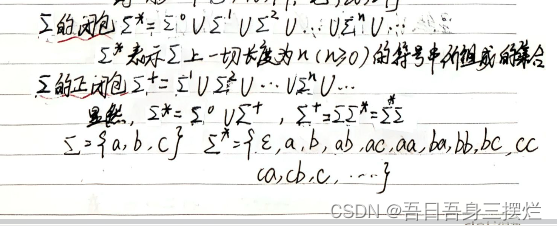 Σ的闭包Σ*=Σ⁰∪Σ¹∪Σ²∪…∪Σⁿ∪…
Σ*表示Σ上一切长度为n(n≥0)的符号串所组成的集合
Σ的正闭包Σ⁺=Σ¹∪Σ²∪…∪Σⁿ∪…
显然, Σ*=Σ⁰∪Σ⁺, Σ⁺=ΣΣ*=Σ*Σ
Σ={a,b,c} Σ*={ε,a,b,ab,ac,aa,ba,bb,bc,cc
ca,cb,c,…}
CSDN @吾日吾身三摆烂